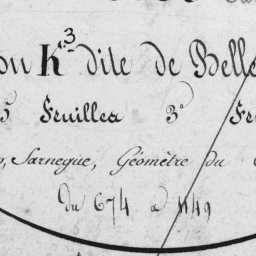 ou K 3 dite de Belle
5 Feuilles 3e Fe
Sarnegue, Géomètre du
Du 674 a 1149